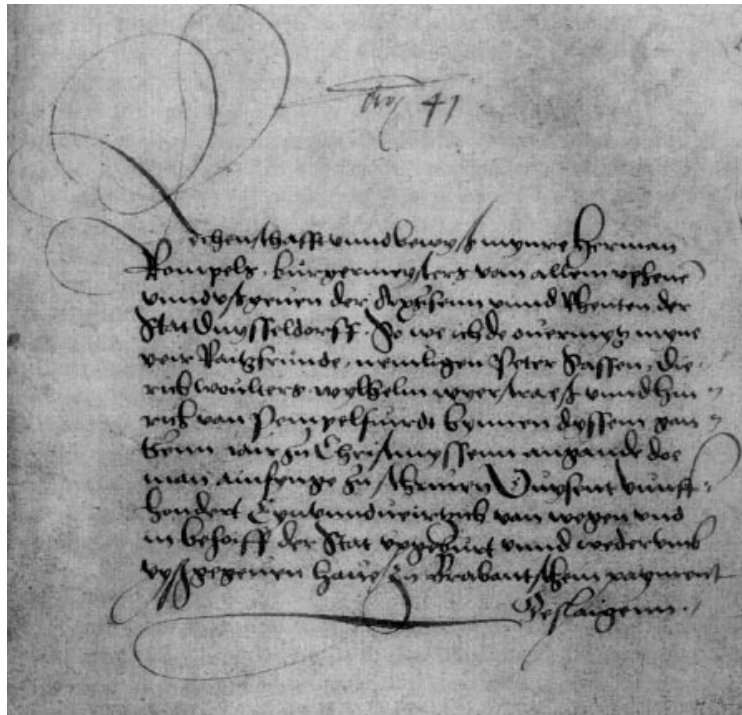 41
Rechenschafft unnd bewyß mynre Herman
Rompels, burgermeysters van allem upheve
unnd ußgeven der Assysenn unnd Renten der
Stat Duysseldorff. So we ich de overmytz myne
veir Raitzfrunde, nemligen Peter Sassen, Die-
rich Wolters, Wylhelm wyerstraeß unnd Hin-
rich van Pempelfurdt bynnen dyssem gan-
tzenn iair zu Christmyssenn angande doe
man ainfenge zu schryven Duysent vunff-
hondert Eynunndveirtich van wegen und
in behoiff der Stat upgeburt unnd wederumb
ußgegeven have, in Brabantschem payment
Beslaigenn.